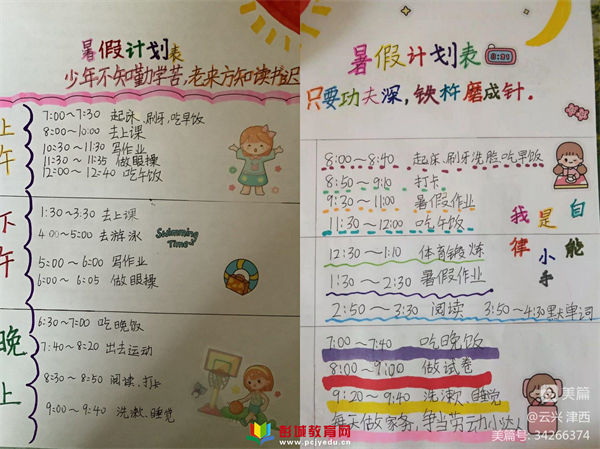 暑假计划表
少年不知勤学苦,老来方知读书迟
上午
7:00～7:30 起床,刷牙,吃早饭
8:00～10:00 去上课
10:30～11:30 写作业
11:30～11:35 做眼操
12:00～12:40 吃午饭
下午
1:30~3:30 去上课
4:00~5:00 去游泳
Swimming Time
5:00～6:00 写作业
6:00～6:05 做眼操
晚上
6:30～7:00 吃晚饭
7:40～8:20 出去运动
8:30～8:50 阅读、打卡
9:00～9:40 洗漱、睡觉
彭城教育网
www.pcjyedu.cn
暑假计划表
8:00
只要功夫深,铁杵磨成针.
8:00～8:40 起床、刷牙洗脸、吃早饭
8:50～9:10 打卡
9:30～11:00 暑假作业
11:30～12:00 吃午饭
我是自律小能手
12:30～1:10 体育锻炼
1:30～2:30 暑假作业
2:50～3:30 阅读 3:50～4:30默单词
7:00～7:40 吃晚饭
8:00～9:00 做试卷
9:20～9:40 洗漱、睡觉
每天做家务,争当劳动小达人
美篇
@云兴津西
美篇号: 34266374